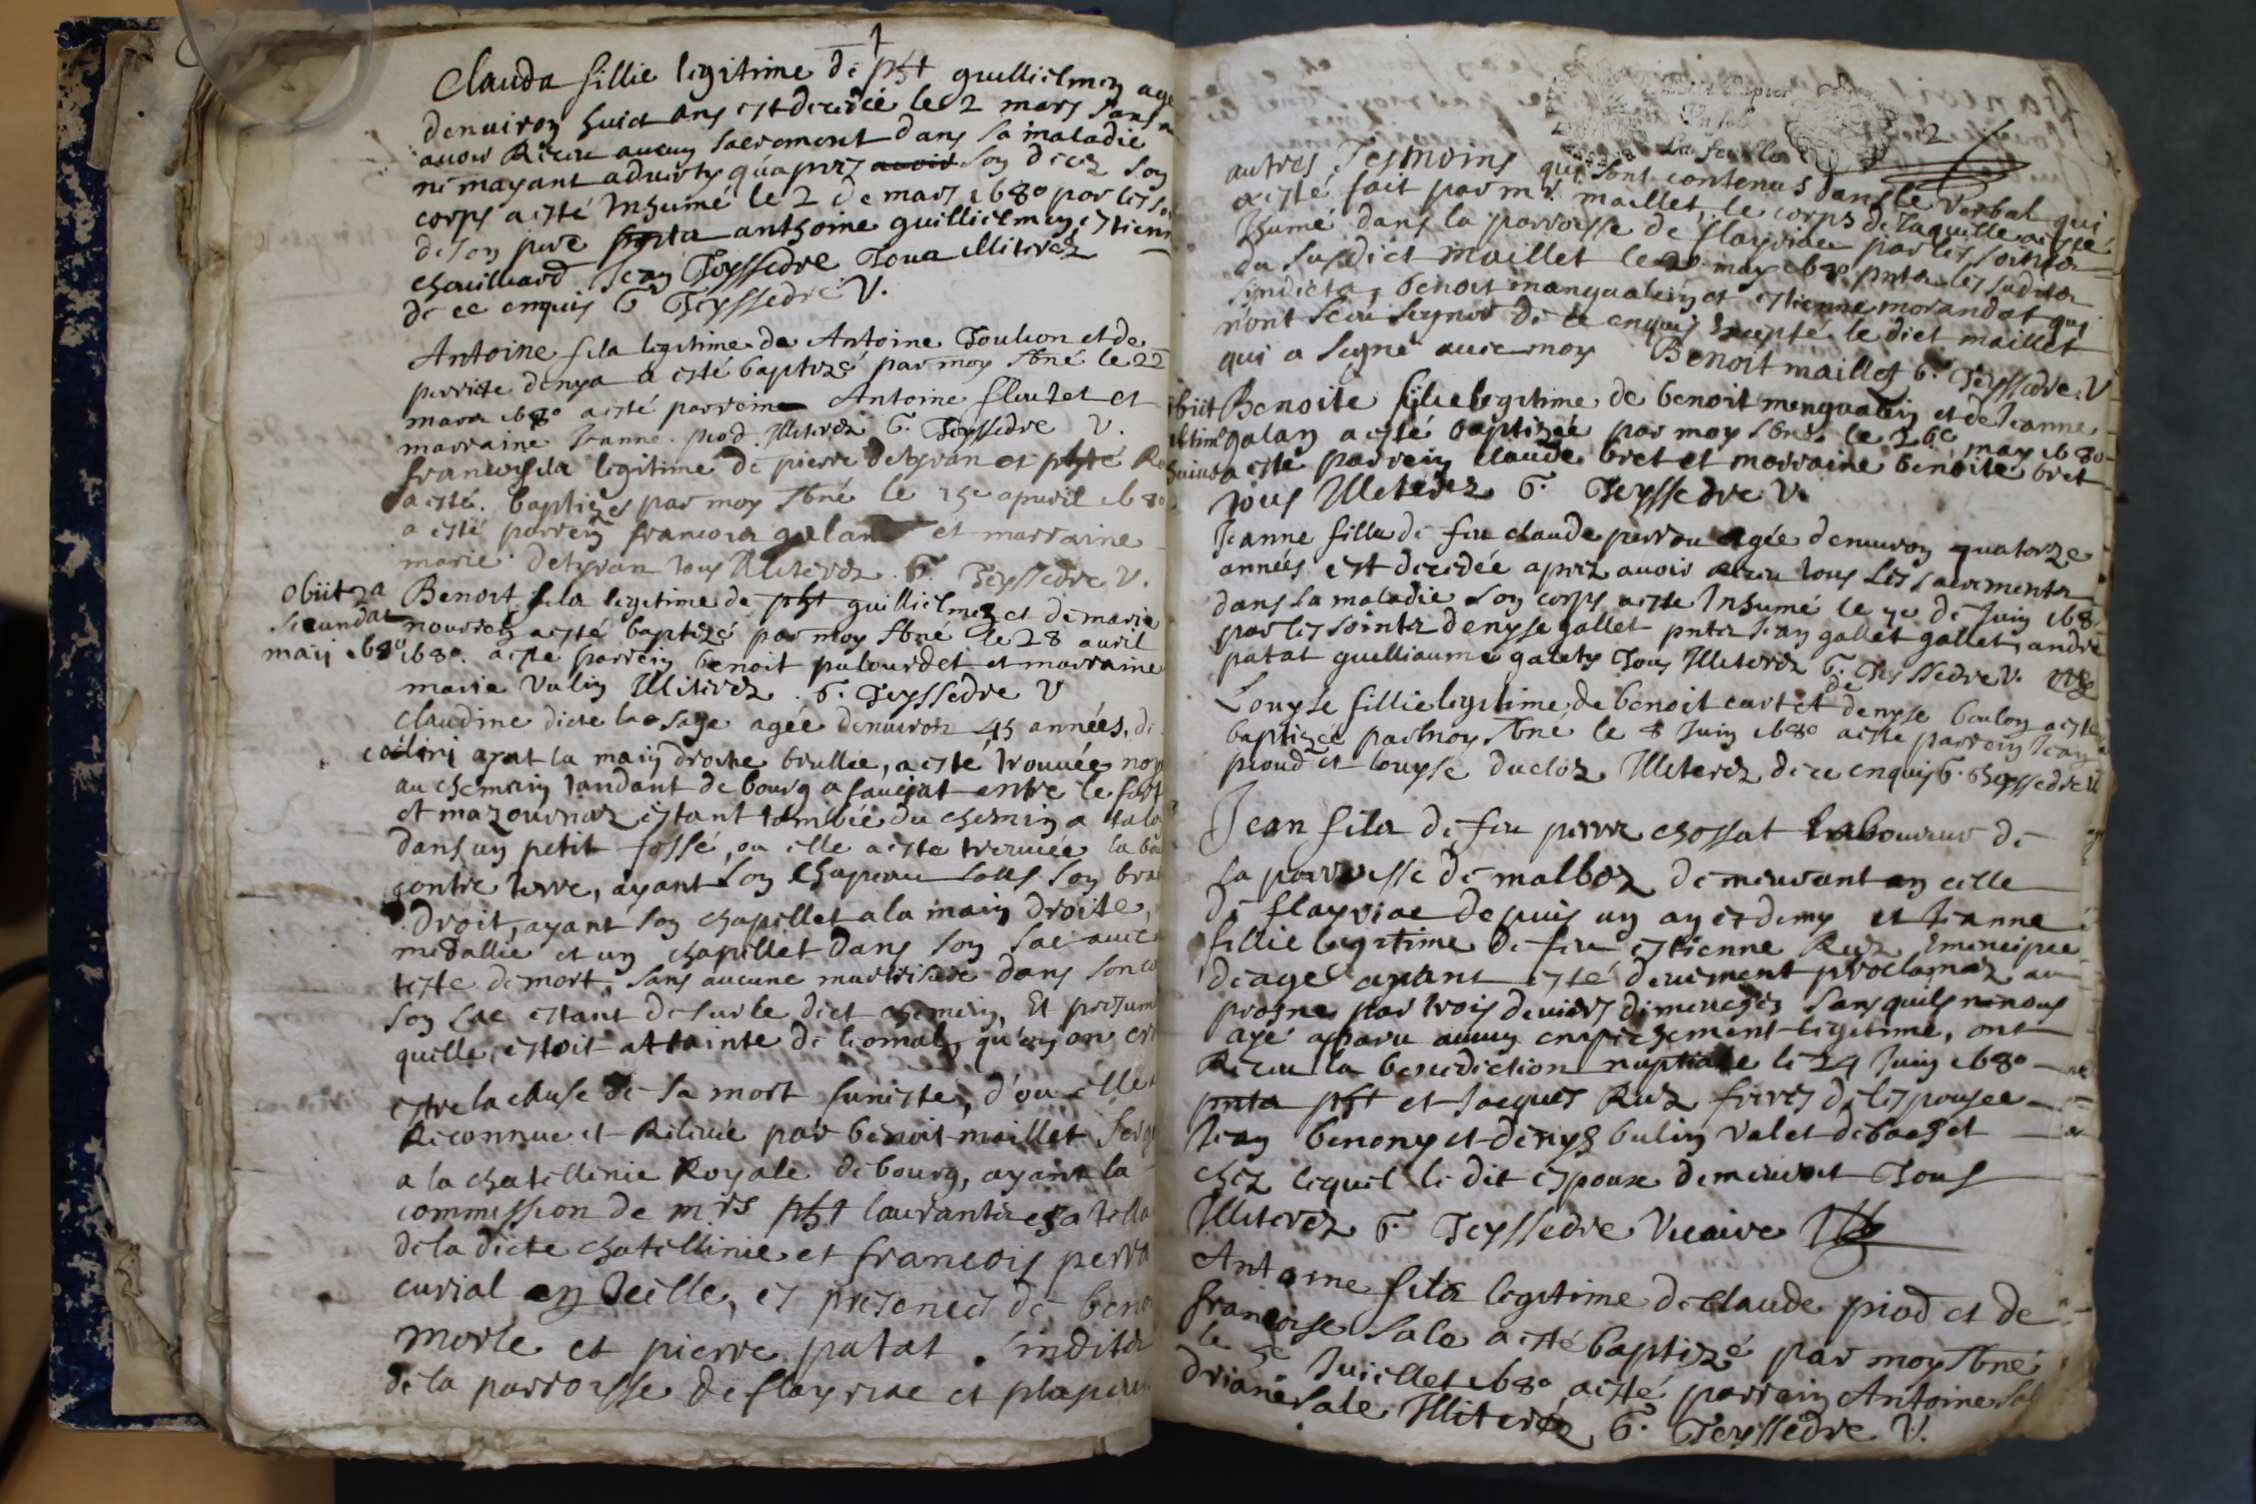 1
Clauda fillie legitime de pht guillielmin age
denuiron huict ans est decedée le 2 mars sans
auoir Receu aucun sacrement dans sa maladie
ni mayant aduerty qúapres auoir son dicez son
corps a esté Inhumé le 2 de mars 1680 par les so
de son pere pnta anthoine guillielmin estienn
chouilliard Jean Teyssedre Tous illiterez
de ce enquis G Teyssedre V.
Antoine fila legitime de Antoine Toulion et de
perrete denya a esté baptizé par moy sbné le 22
mara 1680 a esté parroine Antoine fleutet et
marraine Jeanne piod Illiterez G. Teyssedre V.
francois fila legitime de pierre detyvan et phte Re
a esté baptizes par moy sbné le 15e apuril 1680
a esté parrein francois galan et marraine
marie detyvan tous Illiterez G. Teyssedre V.
obiit 2a
secundae
maij 1680
Benoit fila legitime de pht guillielmin et de marie
nourrein a esté baptizé par moy sbné le 28 auril
1680. a esté parrein benoit palourdet et marraine
marie vulin Illiterez G. Teyssedre V
Claudine dicte la sage agée denuiron 45 années, de
coelini ayat la main droite brullie, a esté trouuée
au chemein tandant de bourg a sauciat entre le
et mazournaz estant tombée du chemin a
dans un petit fossé, ou elle a esté treuuée la
contre terre, ayant son chapeau sous son bra
droit, ayant son chapellet a la main droite,
medallie et un chapellet dans son sac auec
teste de mort, sans aucune murtrisure dans son co
son sac estant desur le dict chemin, Et presum
quelle estoit attainte de le mal, qu'on en cr
estre la cause de sa mort funeste, d'ou elle
Reconnue et Releuée par benoit maillet serg
a la chatellenie Royale de bourg, ayant la
commission de mrs pht laurantz chatella
de la dicte chatellinie et francois perra
curial en icelle, es presences de beno
morle et pierre patat. sindita
de la parroisse de flayriac et plusieu
2
autres Tesmoins qui sont contenus dans le verbal qui
a esté fait par mr. maillet, le corps de laquelle a esté
Ihumé dans la parroisse de flayriac par les sointa
du susdict maillet le 20 may 1680 pnta les susdita
sindicta, benoit manqualein et estienne morandat qui
n'ont sceu signer de ce enquis Excepté le dict maillet
qui a signé auec moy Benoit maillet G. Teyssedre. V
obiit
Benoite filie legitime de benoit menqualein et de Jeanne
galan a esté baptizée par moy sbné le 26e may 1680
a esté parrein claude bret et marraine benoite bret
Tous Illiterez G. Teyssedre V.
Jeanne fille de feu claude perrou agée denuiron quatorze
années est decedée aprez auoir Receu tous les sacrementa
dans sa maladie son corps a esté Inhumé le 7e de Juin 168
par les sointz denyse gallet pnta Jean gallet gallet, andre
patat guelliaume galety Tous Illiterez G. Teyssedre V.
Louyse fillie legitime de benoit curt et de denyse boulon a esté
baptizée par moy sbné le 8 Juin 1680 a esté parrein Jean
pioud et louyse ducloz Illiterez de ce enquis G. Theyssedre V
Jean fila de feu pierre chossat laboureur de
la parroisse de malboz demeurant en celle
de flayriac depuis un an et demy et Jeanne
fillie legitime de feu estienne Ruz Emencipee
de age ayant esté deuement proclamaz au
prosne par trois deniers dimenches sans quils ne nous
aye aparu aucun enpechement legitime, ont
Receu la benediction nuptiale le 24 Juin 1680
pnta pht et Jacques Ruz freres de lespousee
Jean benony et denys bulin valet de bachet
chez lequel le dit espoux demeuroit Tous
Illiterez G. Teyssedre Vicaire
Antoine fila legitime de claude piod et de
francoise sale a esté baptizé par moy sbné
le 5e Juillet 1680 a esté parrein Antoine Sal
driane sale Illiterez G. Teyssedre V.